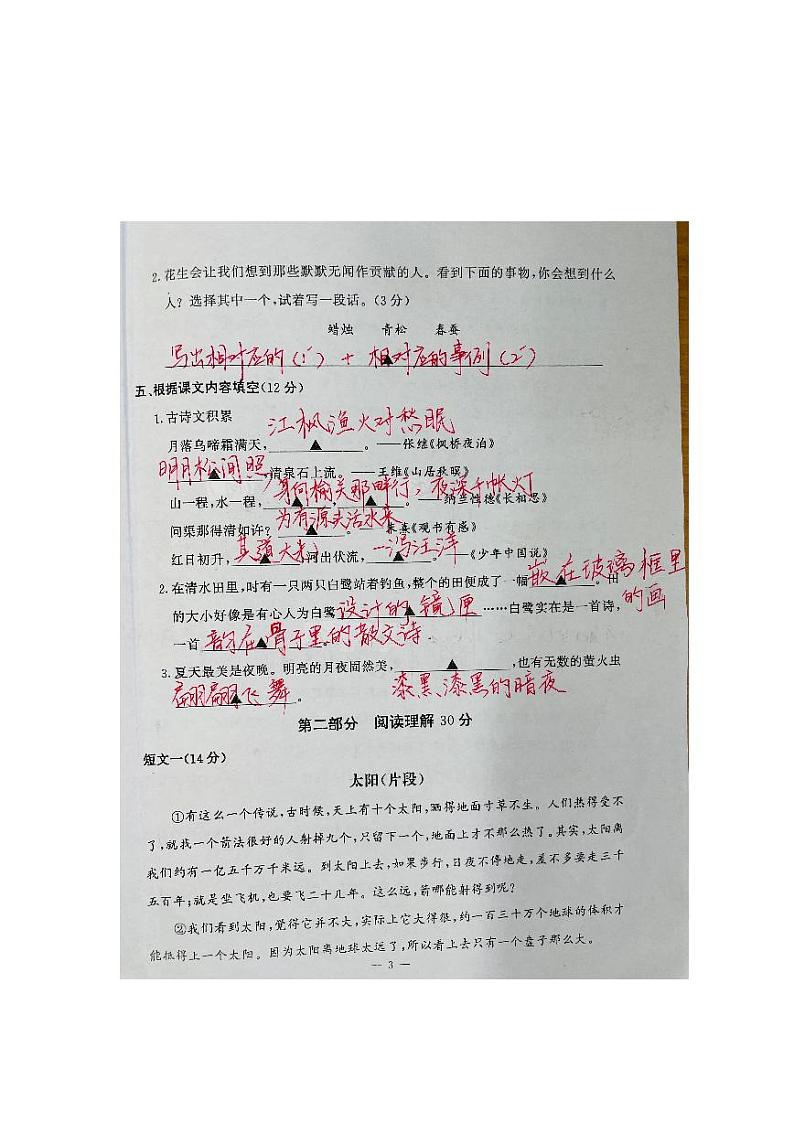 2.花生会让我们想到那些默默无闻作贡献的人。看到下面的事物,你会想到什么
人?选择其中一个,试着写一段话。(3分)
蜡烛 青松 春蚕
写出相对应的(1′)+相对应的事例(2′)
▲
五、根据课文内容填空(12分)
1.古诗文积累
江枫渔火对愁眠
月落乌啼霜满天, ▲ 。——张继《枫桥夜泊》
明月松间照 ▲ ,清泉石上流。——王维《山居秋暝》
身向榆关那畔行,夜深千帐灯
山一程,水一程, ▲ , ▲ 。——纳兰性德《长相思》
为有源头活水来
问渠那得清如许? ▲ 。——朱熹《观书有感》
红日初升,其道大光 ▲ ;河出伏流,一泻汪洋 ▲ 。——《少年中国说》
2.在清水田里,时有一只两只白鹭站着钓鱼,整个的田便成了一幅 ▲ 。田
嵌在玻璃框里的画
的大小好像是有心人为白鹭设计的镜匣 ▲ ……白鹭实在是一首诗,
一首韵在骨子里的散文诗 ▲ 。
3.夏天最美是夜晚。明亮的月夜固然美, ▲ ,也有无数的萤火虫
翩翩飞舞 ▲ 。 漆黑漆黑的暗夜
第二部分 阅读理解30分
短文一(14分)
太阳(片段)
①有这么一个传说,古时候,天上有十个太阳,晒得地面寸草不生。人们热得受不
了,就找一个箭法很好的人射掉九个,只留下一个,地面上才不那么热了。其实,太阳离
我们约有一亿五千万千米远。到太阳上去,如果步行,日夜不停地走,差不多要走三千
五百年;就是坐飞机,也要飞二十几年。这么远,箭哪能射得到呢?
②我们看到太阳,觉得它并不大,实际上它大得很,约一百三十万个地球的体积才
能抵得上一个太阳。因为太阳离地球太远了,所以看上去只有一个盘子那么大。
— 3 —